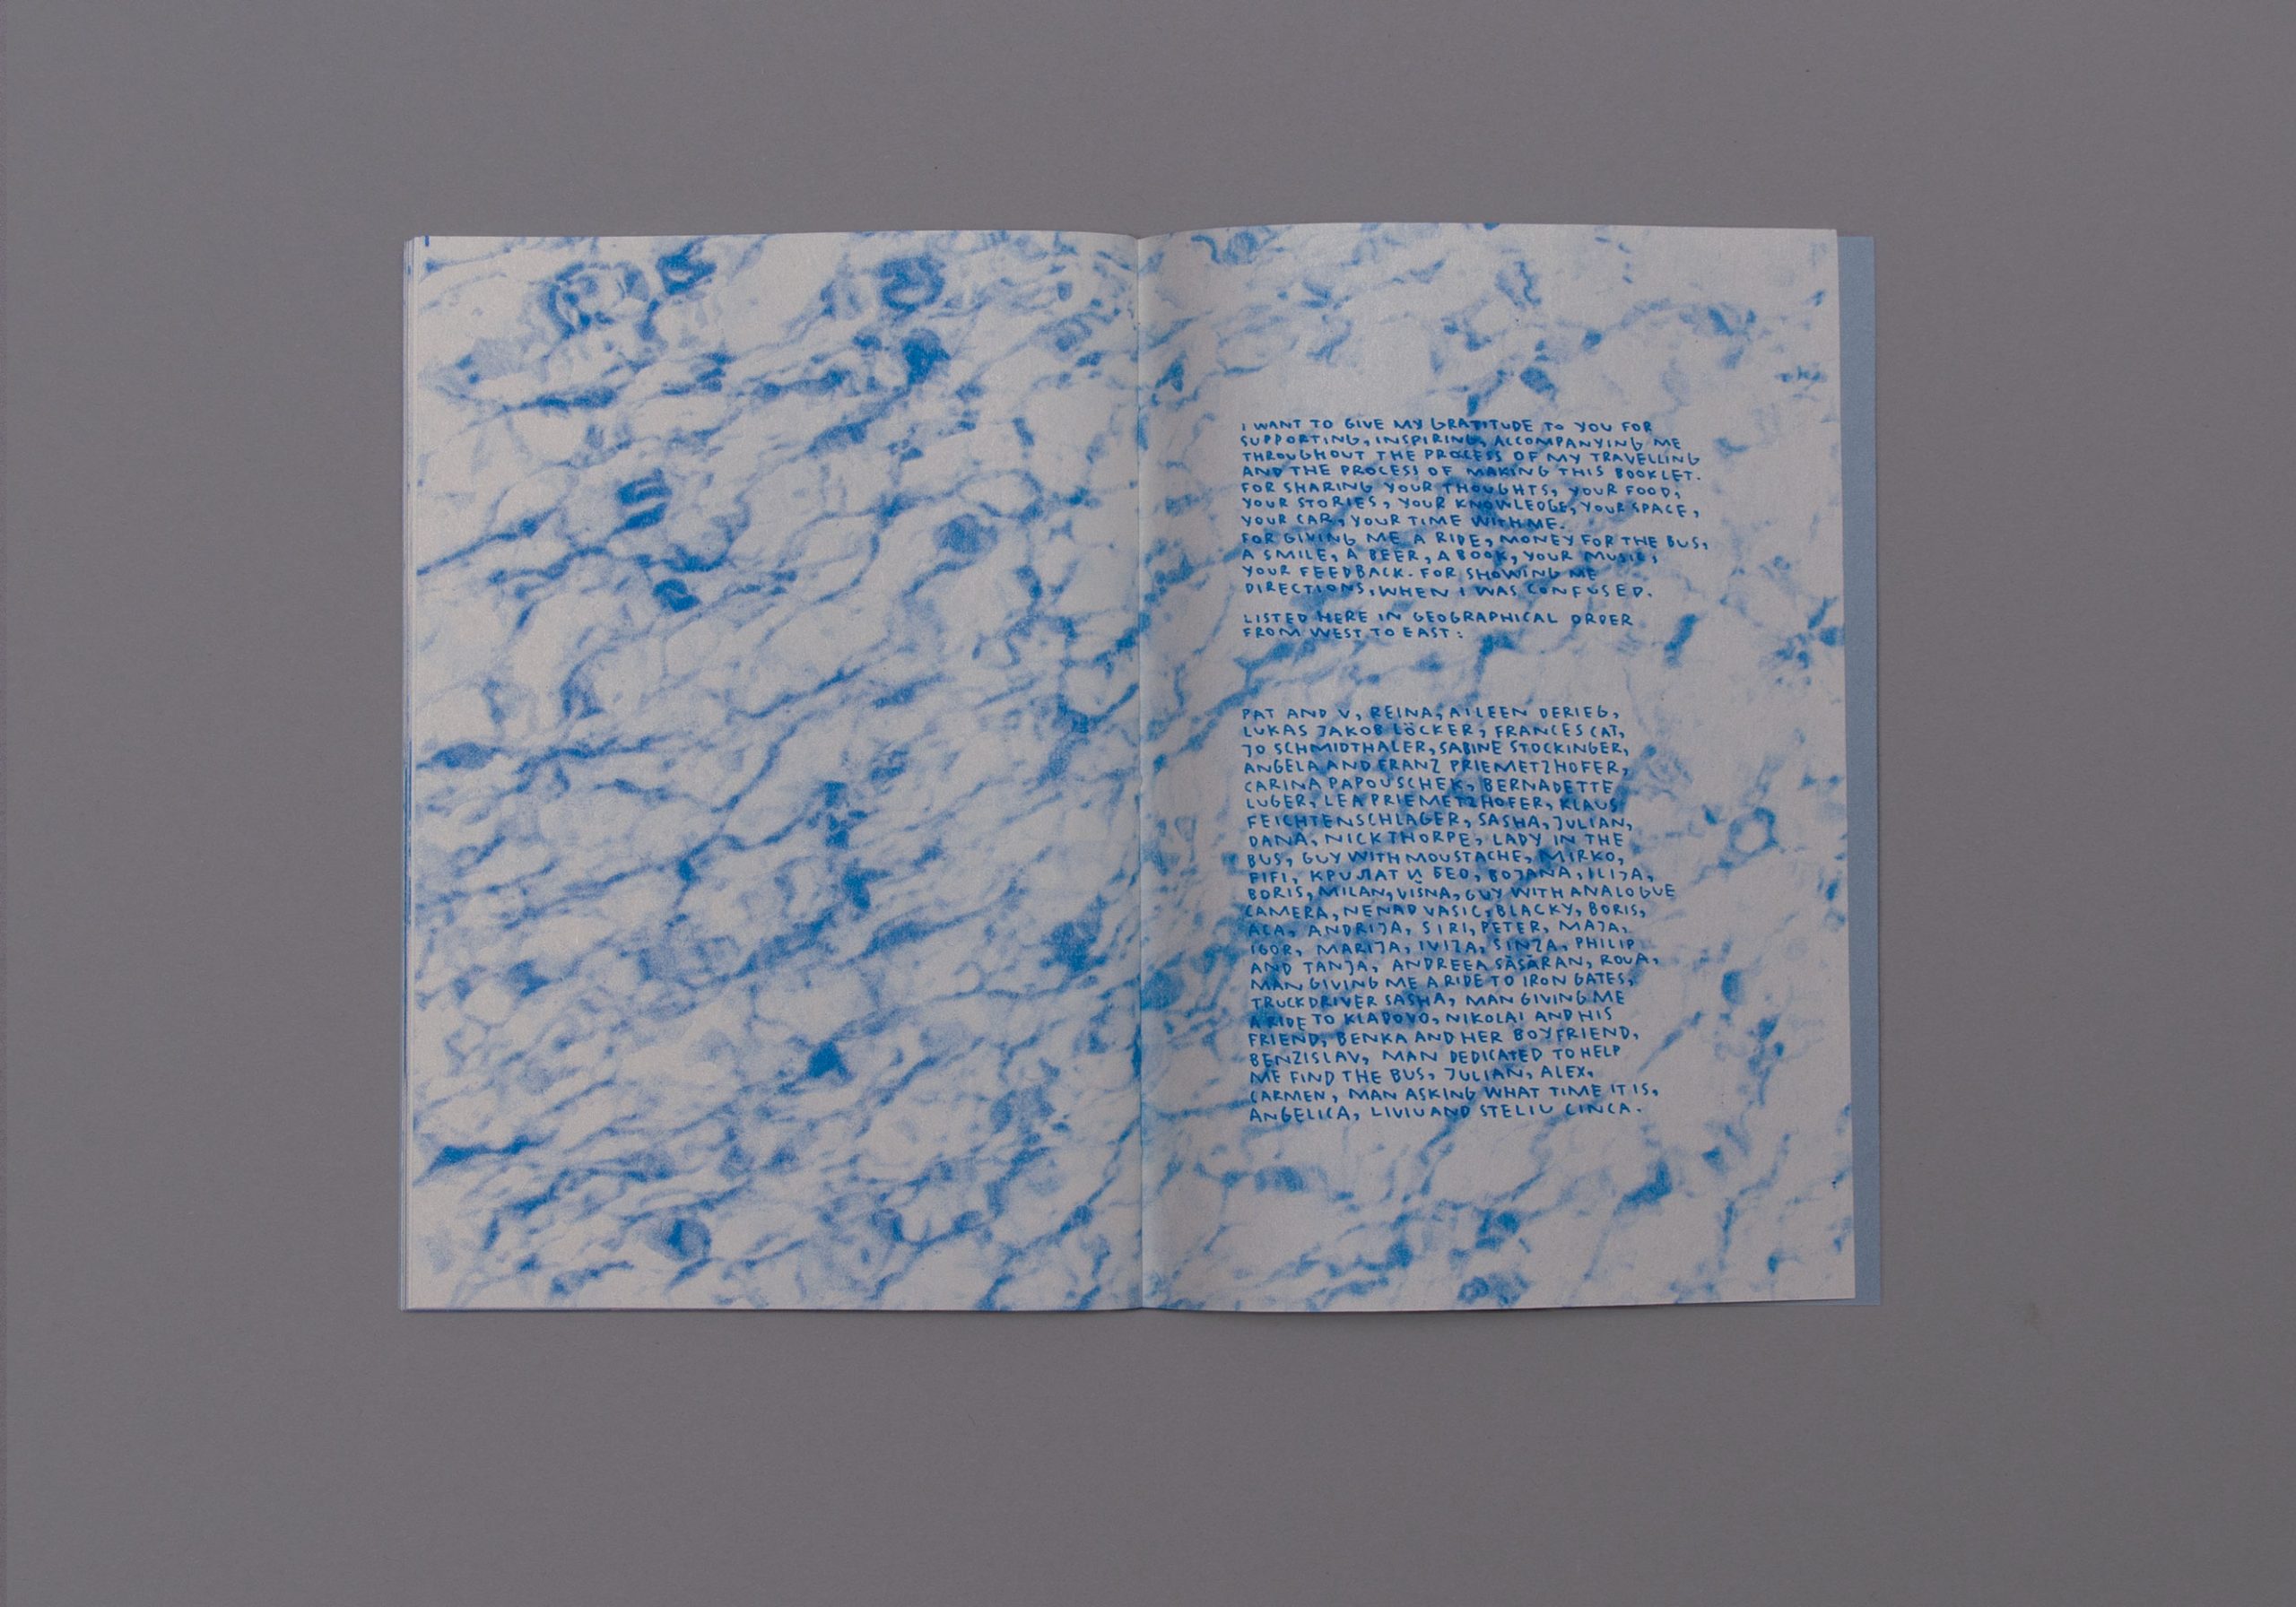 I WANT TO GIVE MY GRATITUDE TO YOU FOR
SUPPORTING, INSPIRING, ACCOMPANYING ME
THROUGHOUT THE PROCESS OF MY TRAVELLING
AND THE PROCESS OF MAKING THIS BOOKLET.
FOR SHARING YOUR THOUGHTS, YOUR FOOD,
YOUR STORIES, YOUR KNOWLEDGE, YOUR SPACE,
YOUR CAR, YOUR TIME WITH ME.
FOR GIVING ME A RIDE, MONEY FOR THE BUS,
A SMILE, A BEER, A BOOK, YOUR MUSIC,
YOUR FEEDBACK. FOR SHOWING ME
DIRECTIONS, WHEN I WAS CONFUSED.
LISTED HERE IN GEOGRAPHICAL ORDER
FROM WEST TO EAST:
PAT AND V, REINA, AILEEN DERIEG,
LUKAS JAKOB LÖCKER, FRANCES CAT,
JO SCHMIDTHALER, SABINE STOCKINGER,
ANGELA AND FRANZ PRIEMETZHOFER,
CARINA PAPOUSCHEK, BERNADETTE
LUGER, LEA PRIEMETZHOFER, KLAUS
FEICHTENSCHLAGER, SASHA, JULIAN,
DANA, NICK THORPE, LADY IN THE
BUS, GUY WITH MOUSTACHE, MIRKO,
FIFI, КРИЛАТ И БЕО, BOJANA, ILIJA,
BORIS, MILAN, VIŠNA, GUY WITH ANALOGUE
CAMERA, NENAD VASIC, BLACKY, BORIS,
ACA, ANDRIJA, SIRI, PETER, MAJA,
IGOR, MARIJA, IVIZA, SINZA, PHILIP
AND TANJA, ANDREEA SĂSĂRAN, ROUA,
MAN GIVING ME A RIDE TO IRON GATES,
TRUCKDRIVER SASHA, MAN GIVING ME
A RIDE TO KLADOVO, NIKOLAI AND HIS
FRIEND, BENKA AND HER BOYFRIEND,
BENZISLAV, MAN DEDICATED TO HELP
ME FIND THE BUS, JULIAN, ALEX,
CARMEN, MAN ASKING WHAT TIME IT IS,
ANGELICA, LIVIU AND STELIU CINCA.